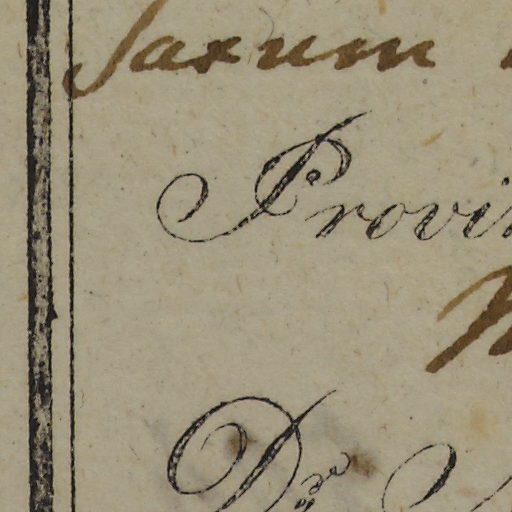 Saxum
Provin
Dr